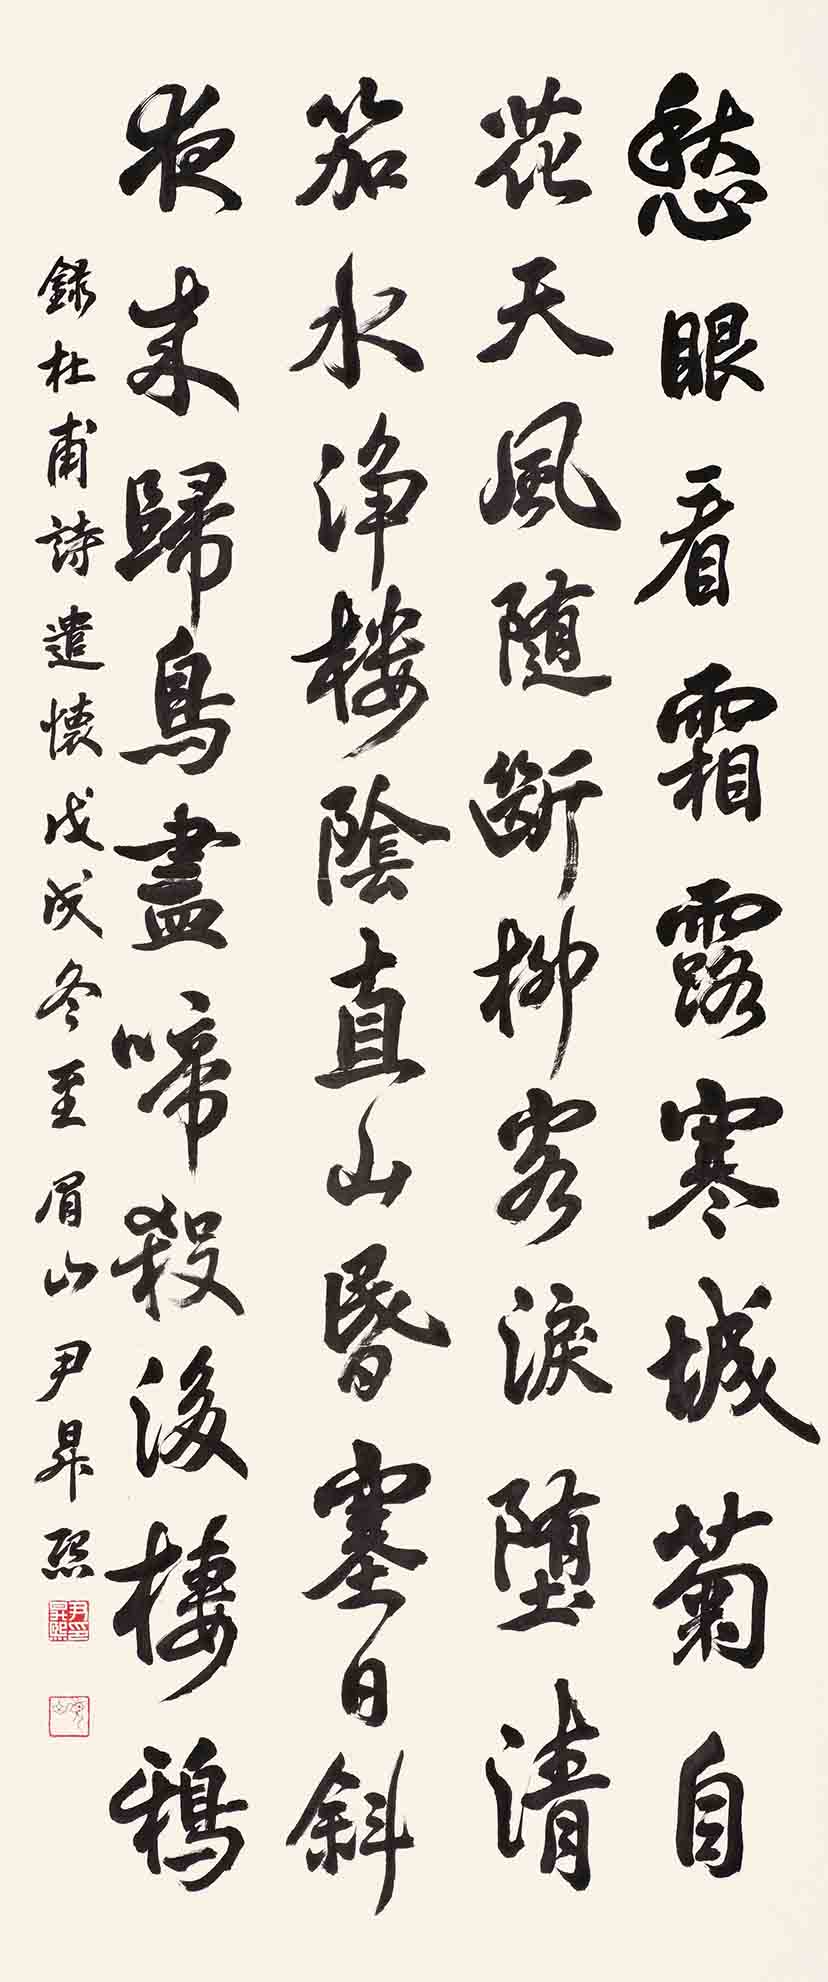 愁眼看霜露寒城菊自
花天風随斷柳客淚堕清
笳水浄樓陰直山昬塞日斜
夜來歸鳥盡啼殺後棲鴉
錄杜甫詩遣懷戊戌冬至 眉山尹昇熙
尹印昇熙